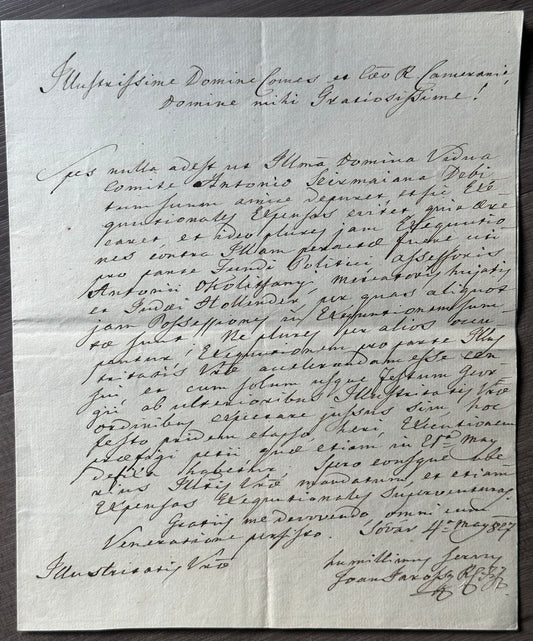 Illustrissime Domine Comes et Cæo R. Camerarie,
Domine mihi Gratiosissime!
Spes nulla adest ut Illma Domina Vidua
Comite Antonio Szirmaiana Debi
tum suum amice depuret et sic Exe
quutionales Expensas evitet, quia
caret, et ideo plures jam Exequutio
nes contra Illam peractæ fuere uti
pro parte Fundi Politici assessoris
Antonii mercatoris hujatis
et Judæi Hollinder, per quas aliquot
jam Possessiones in Exequutionem sum
tæ sunt. Ne plures per alios occu
pantur, Exequutionem pro parte Illus
tritatis Vræ accelerandam esse cen
sui, et cum solum usque Festum Geor
gii ab ulterioribus Illustritatis Vræ
ordinibus expectare jussus sim, hoc
festo pridem elapso, heri, Executionem
præfigi petii, quæ etiam in 21am May
defixa habetur. Spero eousque ulte
rius Illtis Vræ mandatum, et etiam
Expensas Exequutionales superventuras.
Gratiis me devovendo omni cum
Veneratione persisto. Sovar 4a May 807
Illustritatis Vræ
humillimus servus
Joan